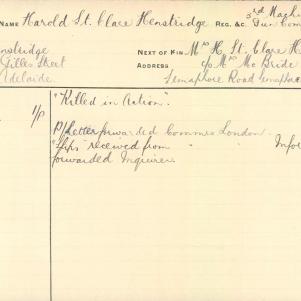 NAME Harold St. Clare Henstridge REG. &C. 3rd Machi
Gun Com
nstridge
Gilles Street
Adelaide
NEXT OF KIN Mrs H. St. Clare H
ADDRESS c/o Mrs Mc Bride
Semaphore Road Semapho
1/P "Killed in Action".
P/Letter forwarded Commrs London.
received from " " Info
forwarded Inquirer.